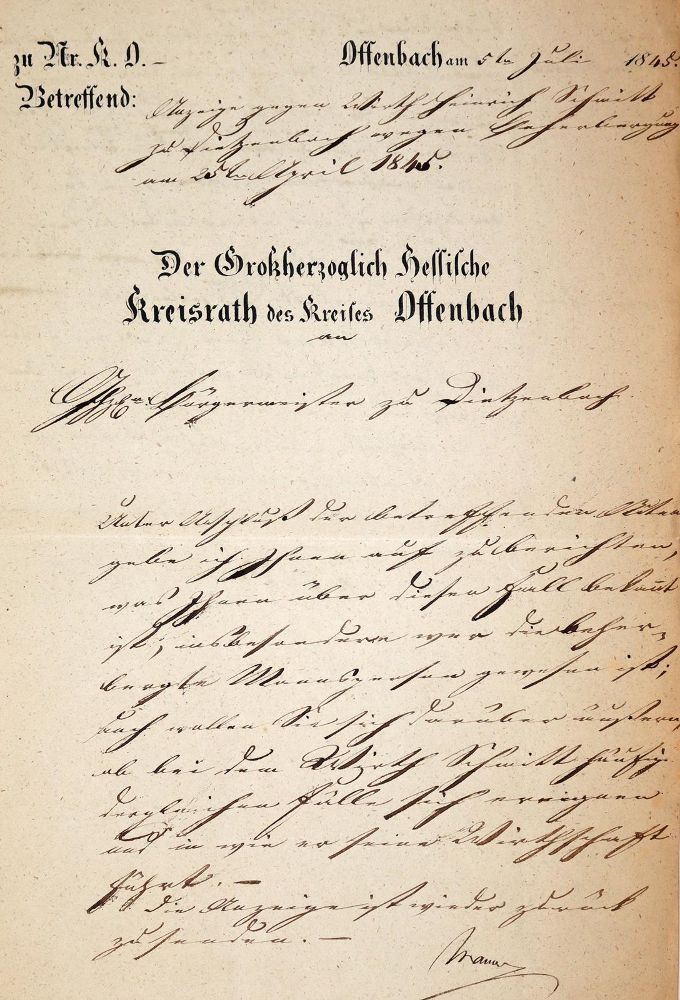 zu Nr. K. D. –
Offenbach am 5ten Juli 1845.
Betreffend:
Anzeige gegen Wirth Heinrich Schmitt
zu Dietzenbach wegen Beherbergung
am 25ten April 1845.
Der Großherzoglich Hessische
Kreisrath des Kreises Offenbach
an
Bürgermeister zu Dietzenbach.
Unter Anschluß der betreffenden Akten
gebe ich Ihnen auf zu berichten,
was Ihnen über diesen Fall bekannt
ist, insbesondere wer die beher-
bergte Mannsperson gewesen ist;
auch wollen Sie sich darüber äußern,
ob bei dem Wirth Schmitt häufig
dergleichen Fälle sich ereignen
und in wie er seine Wirthschaft
führt. –
Die Anzeige ist wieder zurück
zu senden. –